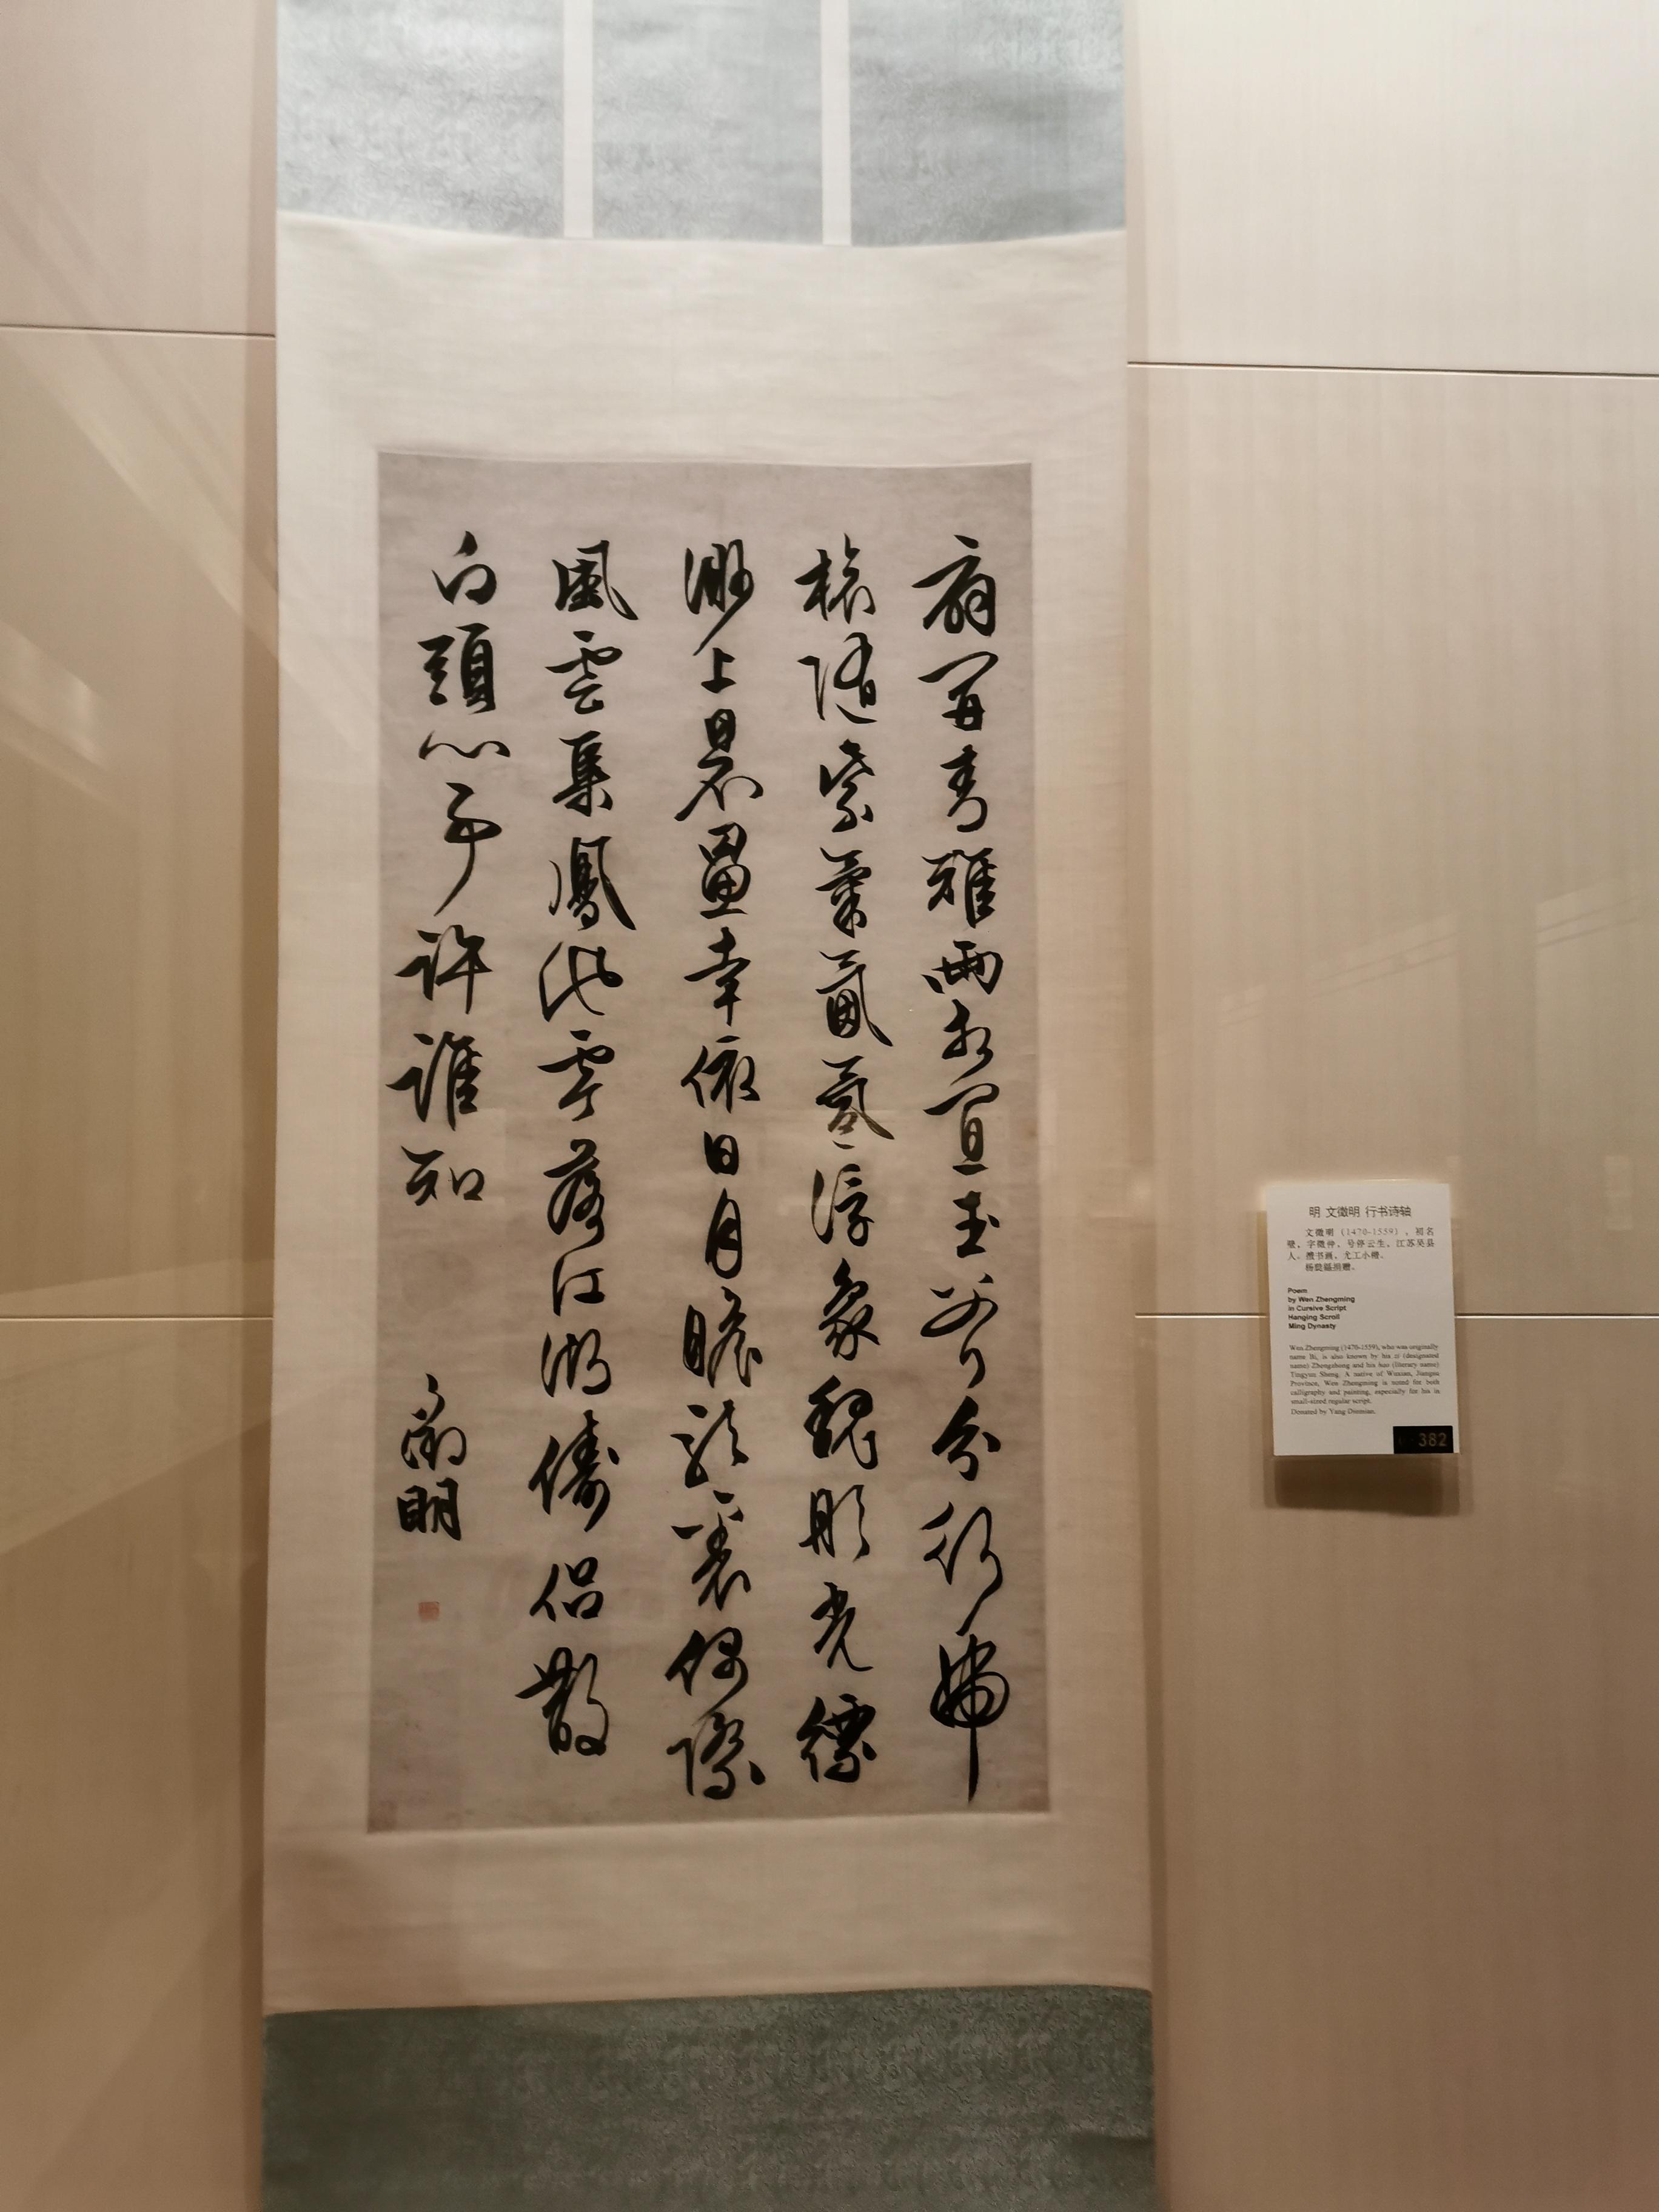 扇開青雉兩相宜玉斧分行虎
旅隨紫氣氤氳浮象魏彤光縹
緲上罘罳幸依日月瞻龍袞偶際
風雲集鳳池零落江湖儔侶散
白頭心事許誰知
徵明
明 文徵明 行书诗轴
文徵明（1470-1559），初名
壁，字徵仲，号停云生，江苏吴县
人。擅书画，尤工小楷。
捐赠。
Poem
by Wen Zhengming
in Cursive Script
Hanging Scroll
Ming Dynasty
Wen Zhengming (1470-1559), who was originally
name Bi, is also known by his zi (designated
name) Zhengzhong and his hao (literary name)
Tingyun Sheng. A native of Wuxian, Jiangsu
Province, Wen Zhengming is noted for both
calligraphy and painting, especially for his in
small-sized regular script.
Donated by Yang
382